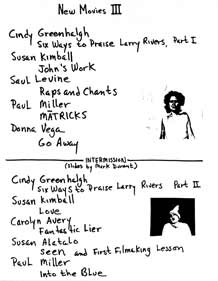 New Movies III
Cindy Greenhalgh
Six Ways to Praise Larry Rivers, Part I
Susan Kimball
John's Work
Saul Levine
Raps and Chants
Paul Miller
MĀTRICKS
Donna Vega
Go Away
INTERMISSION
(Slides by Mark Durant)
Cindy Greenhalgh
Six Ways to Praise Larry Rivers Part II
Susan Kimball
Love
Carolyn Avery
Fantastic Lier
Susan Alatalo
Seen and First Filmaking Lesson
Paul Miller
Into the Blue